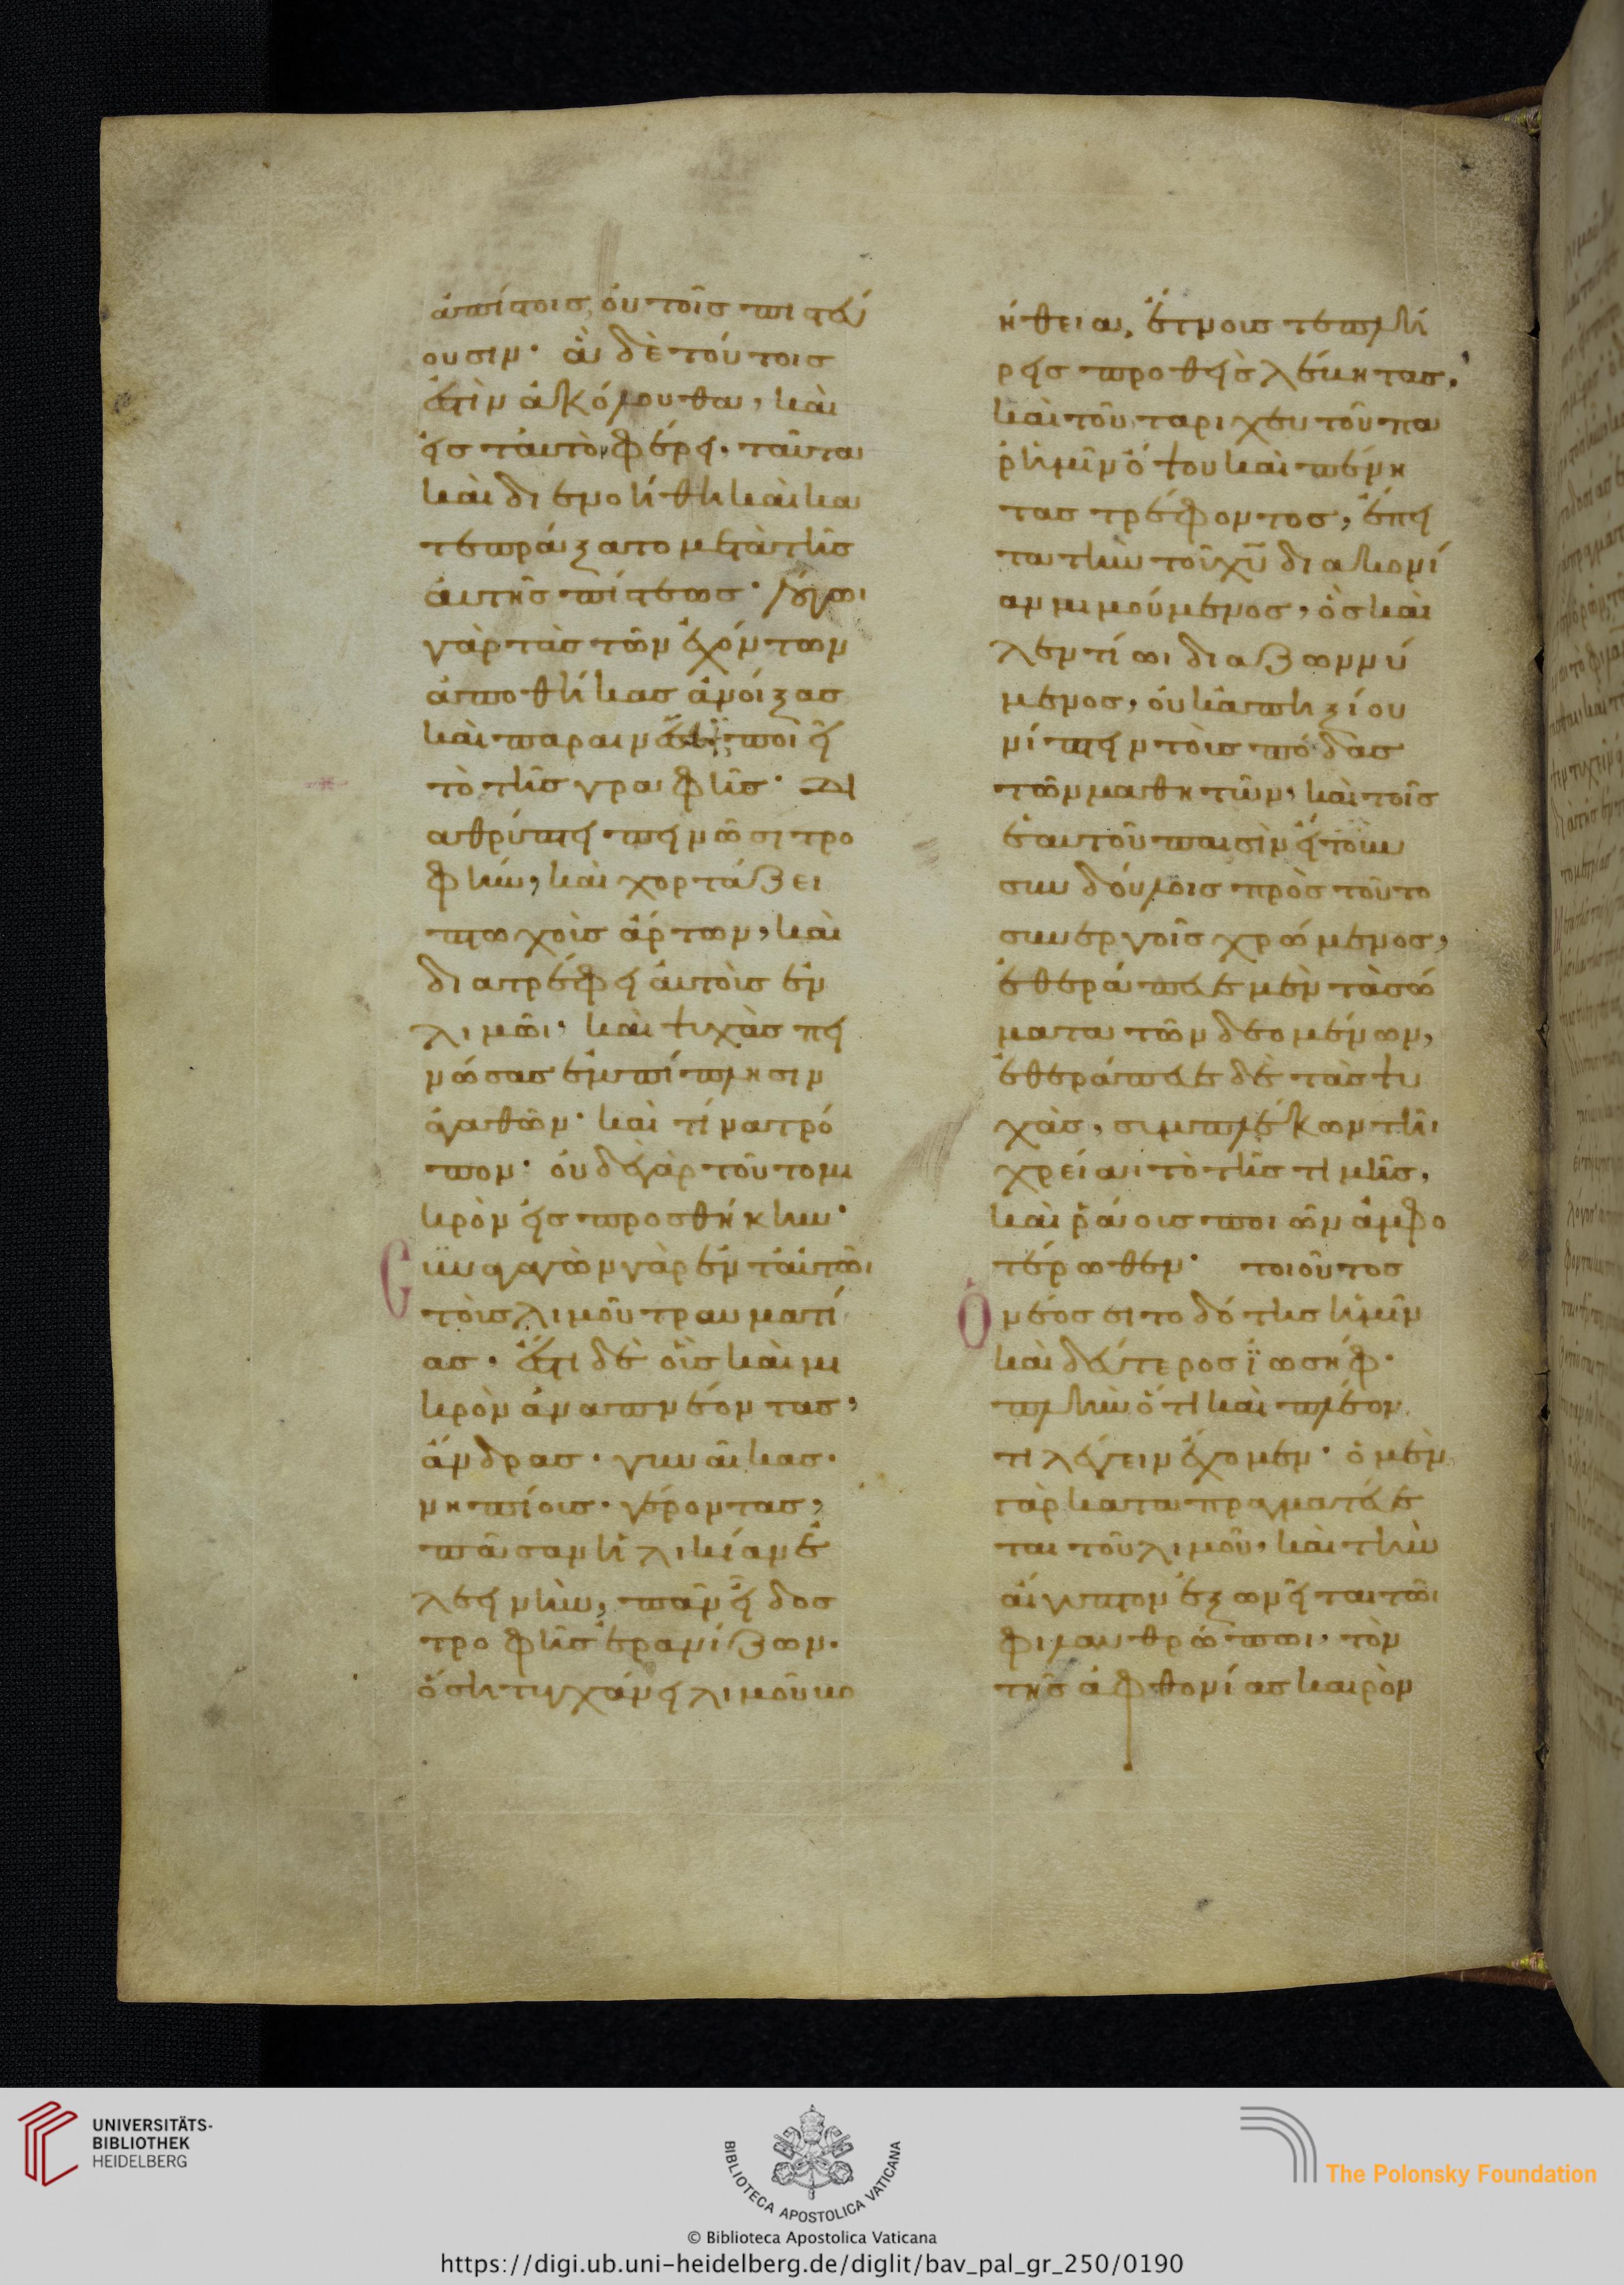 ἀπίστοις, οὐ τοῖς πιστεύ
ουσιν· ἃ δὲ τούτοις
ἐστὶν ἀκόλουθα, καὶ
εἰς ταυτὸν φέρει. ταῦτα
καὶ διενοήθη καὶ κα
τεπράξατο μετὰ τῆς
αὐτῆς πίστεως· λόγωι
γὰρ τὰς τῶν ἐχόντων
ἀποθήκας ἀνοίξας
καὶ ποιεῖ
τὸ τῆς γραφῆς· δι
αθρύπτει πεινῶσι τρο
φὴν, καὶ χορτάζει
πτωχοὺς ἄρτων, καὶ
διατρέφει αὐτοὺς ἐν
λιμῶι· καὶ ψυχὰς πει
νώσας ἐμπίπλησιν
ἀγαθῶν· καὶ τίνα τρό
πον· οὐδὲ γὰρ τοῦτο μι
κρὸν εἰς προσθήκην·
Cϋναγαγὼν γὰρ ἐν ταυτῶι
τοὺς λιμοῦ τραυματί
ας· ἔστι δὲ οὓς καὶ μι
κρὸν ἀναπνέοντας,
ἄνδρας· γυναῖκας·
νηπίους· γέροντας,
πᾶσαν ἡλικίαν ἐ
λεεινὴν, πᾶν εἶδος
τροφῆς ἐρανίζων.
ὅση τυγχάνει λιμοῦ βο
ήθεια, ἔτνους τε πλή
ρεις προθεὶς λέβητας.
καὶ τοῦ ταριχευτοῦ πα
ρ' ἡμῖν ὄψου καὶ πένη
τας τρέφοντος, ἔπει
τα τὴν τοῦ χυ διακονί
αν μιμούμενος, ὃς καὶ
λεντίωι διαζωννύ
μενος, οὐκ ἀπηξίου
νίπτειν τοὺς πόδας
τῶν μαθητῶν, καὶ τοῖς
ἑαυτοῦ παισὶν εἴτουν
συνδούλοις πρὸς τοῦτο
συνεργοῖς χρώμενος,
ἐθεράπευε μὲν τὰ σώ
ματα τῶν δεομένων,
ἐθεράπευε δὲ τὰς ψυ
χὰς, συμπλέκων τῆι
χρείαι τὸ τῆς τιμῆς,
καὶ ῥάιους ποιῶν ἀμφο
τέρωθεν· τοιοῦτος
Ὁ νέος σιτοδότης ἡμῖν
καὶ δεύτερος ϊωσήφ·
πλὴν ὅτι καὶ πλέον
τι λέγειν ἔχομεν· ὁ μὲν
γὰρ καταπραγματεύε
ται τοῦ λιμοῦ, καὶ τὴν
αἴγυπτον ἐξωνεῖται τῶι
φιλανθρώπωι, τὸν
τῆς ἀφθονίας καιρὸν
UNIVERSITÄTS-
BIBLIOTHEK
HEIDELBERG
BIBLIOTECA APOSTOLICA VATICANA
The Polonsky Foundation
© Biblioteca Apostolica Vaticana
https://digi.ub.uni-heidelberg.de/diglit/bav_pal_gr_250/0190